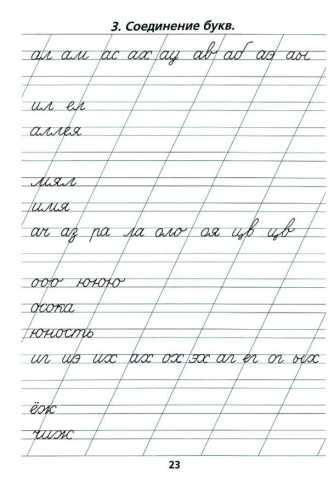 3. Соединение букв.
ал ам ас ах ау ав аб аэ аы
ил ел
аллея
мял
имя
ач аз ра ла оло оя цв цв
ооо ююю
осока
юность
иг иэ их ах ох эх аг ег ог ых
ёж
чиж
23